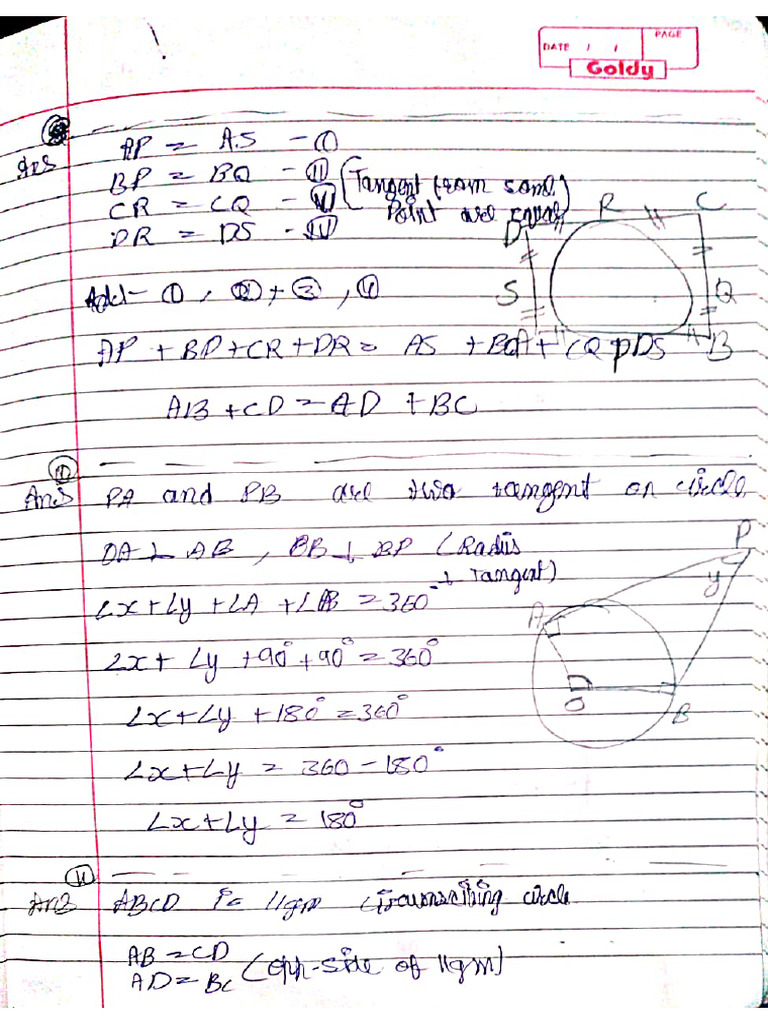 DATE / / PAGE
Goldy
Ans AP = AS - (I)
BP = BQ - (II)
CR = CQ - (III)
DR = DS - (IV)
(Tangent from same
Point are equal)
Add - ①, ② + ③, ④
AP + BP + CR + DR = AS + BQ + CQ + DS
AB + CD = AD + BC
D R C
S Q
A P B
(10)
Ans PA and PB are two tangent on circle
OA ⊥ AB, OB ⊥ BP (Radius
⊥ Tangent)
∠x + ∠y + ∠A + ∠B = 360°
∠x + ∠y + 90° + 90° = 360°
∠x + ∠y + 180° = 360°
∠x + ∠y = 360 - 180°
∠x + ∠y = 180°
P
y
A
O
B
(11)
Ans ABCD is ||gm circumscribing circle
AB = CD
AD = BC (opp-side of ||gm)